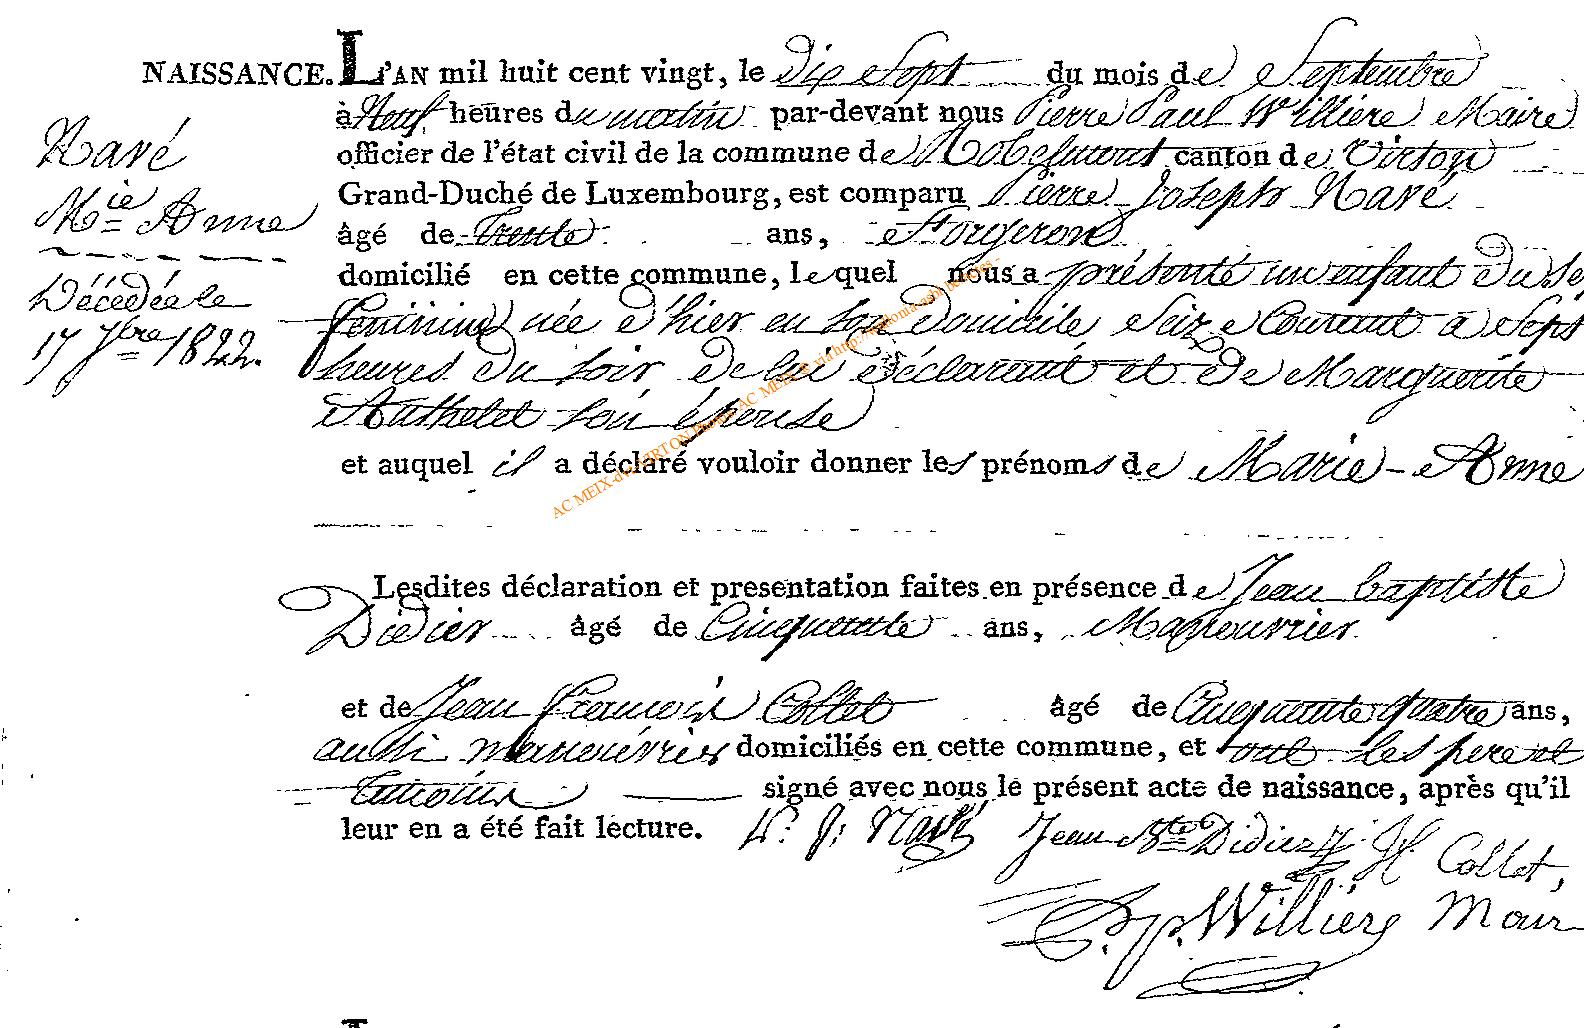 NAISSANCE. L'AN mil huit cent vingt, le dix Sept du mois de Septembre
à Neuf heures du matin par-devant nous Pierre Paul Willière Maire
officier de l'état civil de la commune de Robelmont canton de Virton
Grand-Duché de Luxembourg, est comparu Pierre Joseph Navé
âgé de trente ans, Forgeron
domicilié en cette commune, lequel nous a présenté un enfant du se
feminine née d'hier en son domicile Seize Courant à Sept
heures du soir, de lui déclarant et de Marguerite
Authelet son épouse
et auquel il a déclaré vouloir donner les prénoms de Marie-Anne
Navé
Mie Anne
Décédée le
17 7bre 1822.
Lesdites déclaration et presentation faites en présence de Jean baptiste
Didier âgé de Cinquante ans, Manouvrier
et de Jean françois Collet âgé de Cinquante quatre ans,
aussi manouvrier domiciliés en cette commune, et ont les pere et
temoins signé avec nous le présent acte de naissance, après qu'il
leur en a été fait lecture. P. J. Navé Jean Bte Didier J. f. Collet,
P. p. Willière Mair
AC MEIX-dt-VIRTON